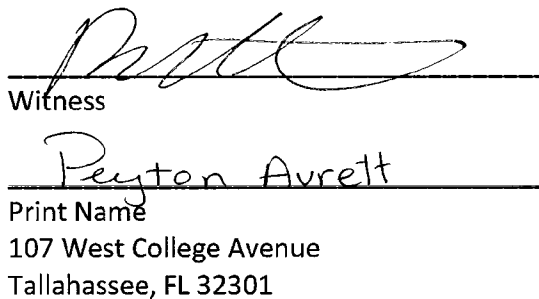 Witness
Peyton Avrett
Print Name
107 West College Avenue
Tallahassee, FL 32301